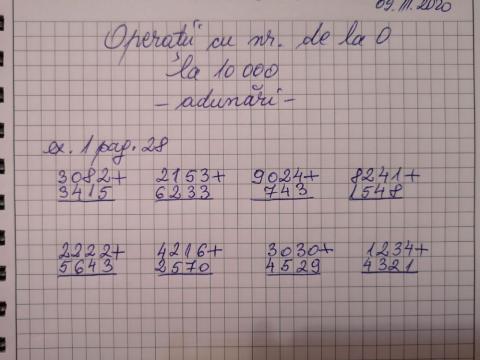 09.III.2020
Operații cu nr. de la 0
la 10 000
- adunări -
ex. 1 pag. 28
3082+ 2153+ 9024+ 8241+
3415 6233 743 1548
2222+ 4216+ 3030+ 1234+
5643 2570 4529 4321